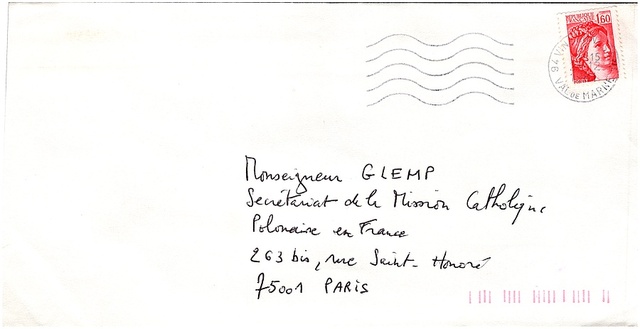 1,60
15
94 VAL DE MARNE
Monseigneur GLEMP
Secrétariat de la Mission Catholique
Polonaise en France
263 bis, rue Saint-Honoré
75001 PARIS